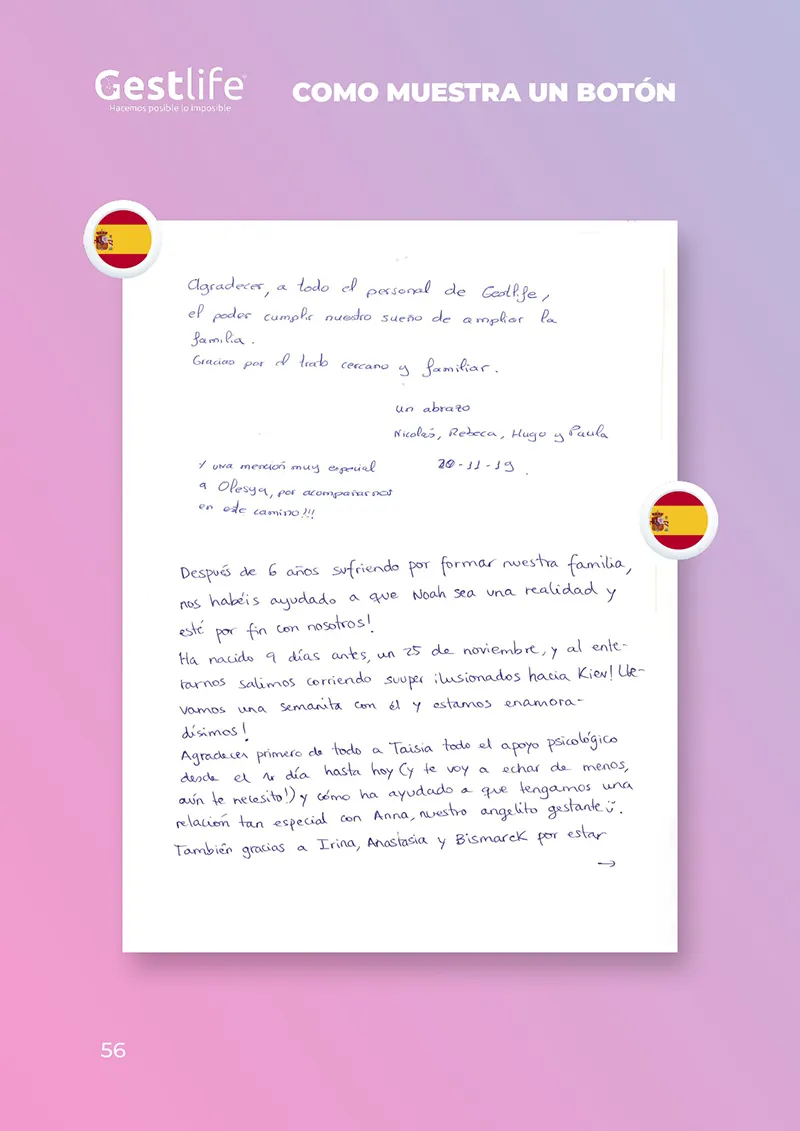 Gestlife
Hacemos posible lo imposible
COMO MUESTRA UN BOTÓN
Agradecer, a todo el personal de Gestlife,
el poder cumplir nuestro sueño de ampliar la
familia.
Gracias por el trato cercano y familiar.
un abrazo
Nicolás, Rebeca, Hugo y Paula
20-11-19.
Y una mención muy especial
a Olesya, por acompañarnos
en este camino!!!
Después de 6 años sufriendo por formar nuestra familia,
nos habéis ayudado a que Noah sea una realidad y
esté por fin con nosotros!
Ha nacido 9 días antes, un 25 de noviembre, y al ente-
rarnos salimos corriendo suuper ilusionados hacia Kiev! Lle-
vamos una semanita con él y estamos enamora-
dísimos!
Agradecer primero de todo a Taisia todo el apoyo psicológico
desde el 1r día hasta hoy (y te voy a echar de menos,
aún te necesito!) y cómo ha ayudado a que tengamos una
relación tan especial con Anna, nuestro angelito gestante ü.
También gracias a Irina, Anastasia y Bismarck por estar
→
56